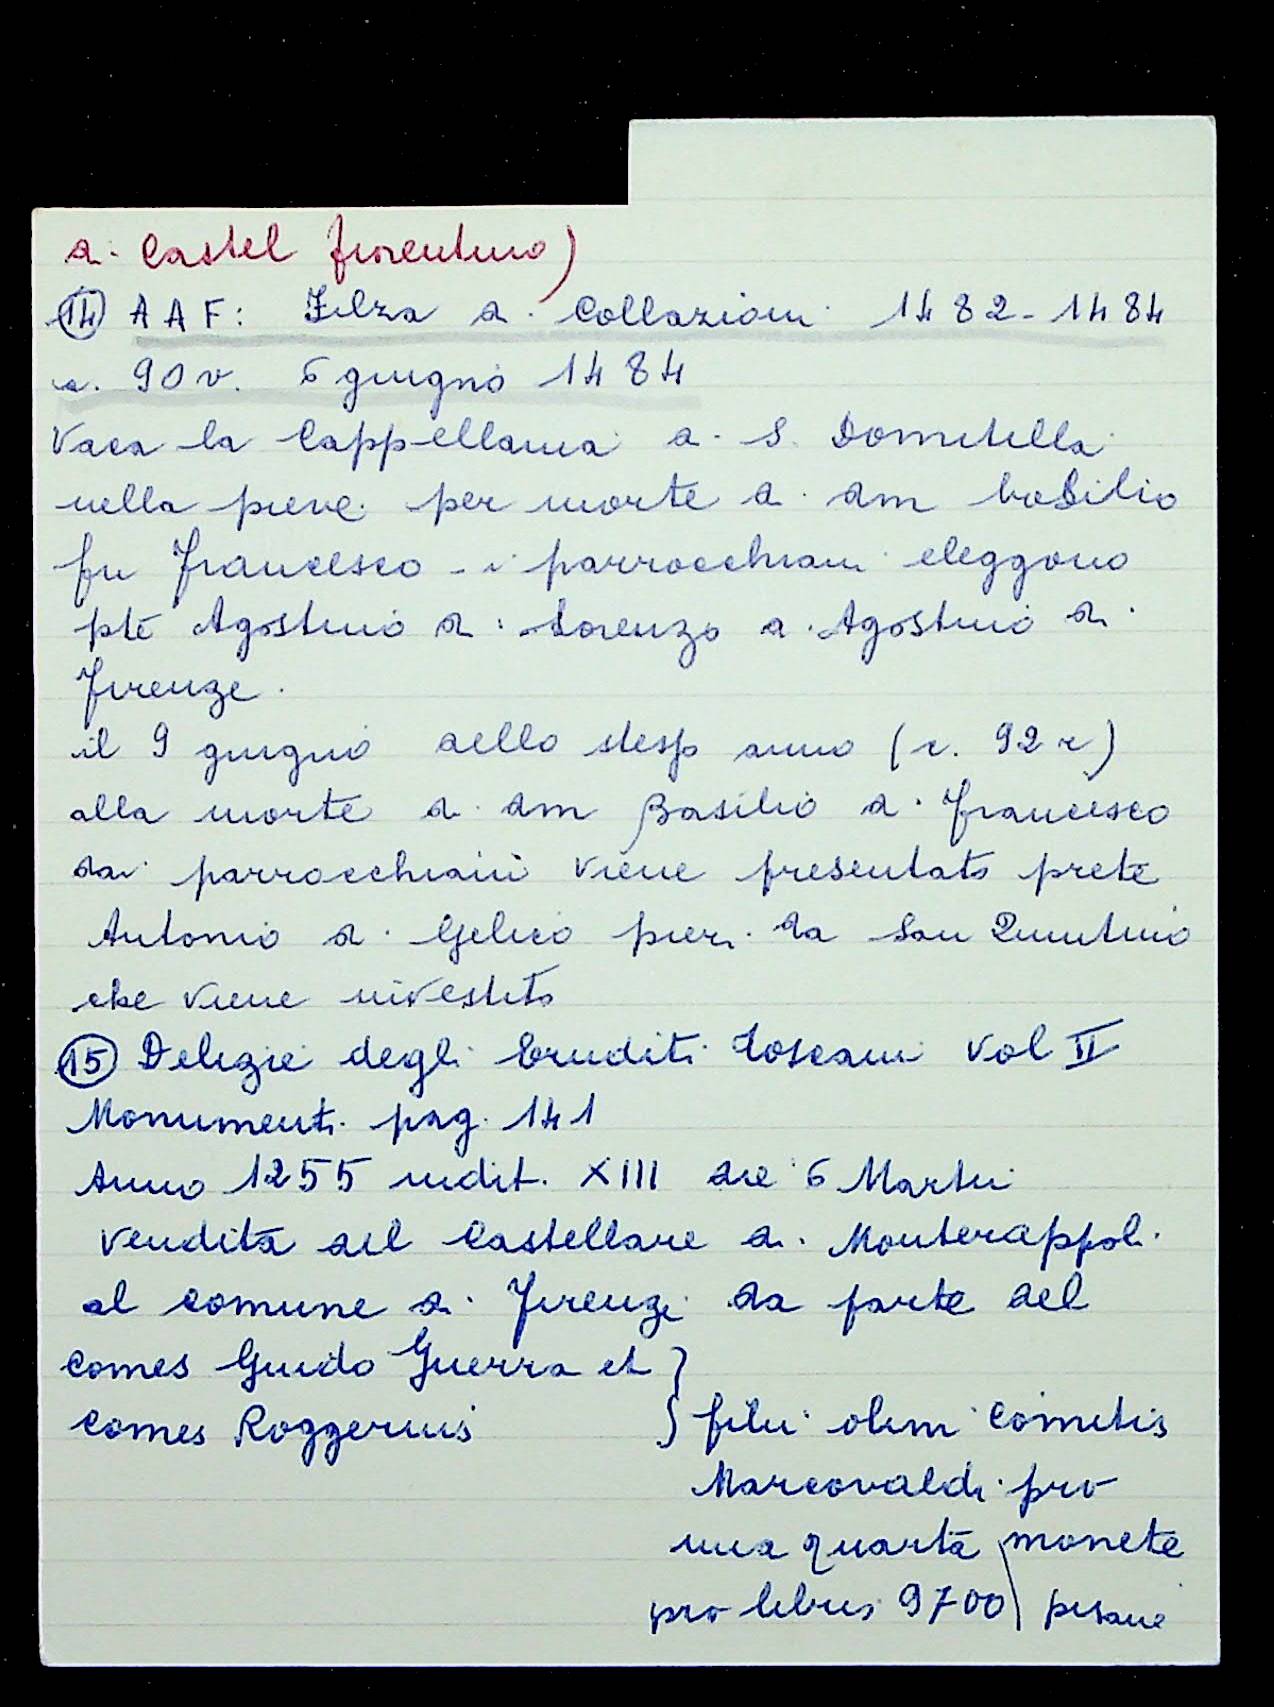 di Castel fiorentino)
(14) AAF: Filza di Collazioni 1482-1484
c. 90v. 6 giugno 1484
Vaca la Cappellania di S. Domitilla
nella pieve per morte di dm baSilio
fu Francesco - i parrocchiani eleggono
pte Agostino di Lorenzo di Agostino di
Firenze.
il 9 giugno dello stesso anno (c. 92r)
alla morte di dm Basilio di Francesco
dai parrocchiani viene presentato prete
Antonio di pieri da San Quintino
che viene investito
(15) Delizie degli Eruditi Toscani Vol II
Monumenti pag. 141
Anno 1255 indit. XIII die 6 Martii
vendita del Castellare di Monterappoli
al comune di Firenze da parte del
Comes Guido Guerra et }
Comes Roggerius } filii olim Comitis
Marcovaldi pro
una quarta monete
pro libris 9700 pisane